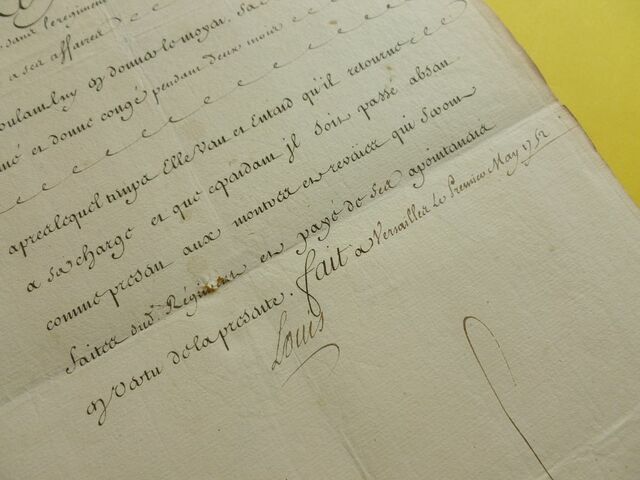 dans le regiment
a ses affaires
voulant luy en donner le moyen, Sa
né et donne congé pendant deux mois
apres lequel temps Elle Veut et Entend qu'il retourne
a sa charge et que cependant jl Soit passé absan
comme presan aux montres et reveües qui Seront
faites dud. Régiment et payé de Ses apointemens
en Vertu de la presente. fait a Versailles Le Premier May 1752
Louis